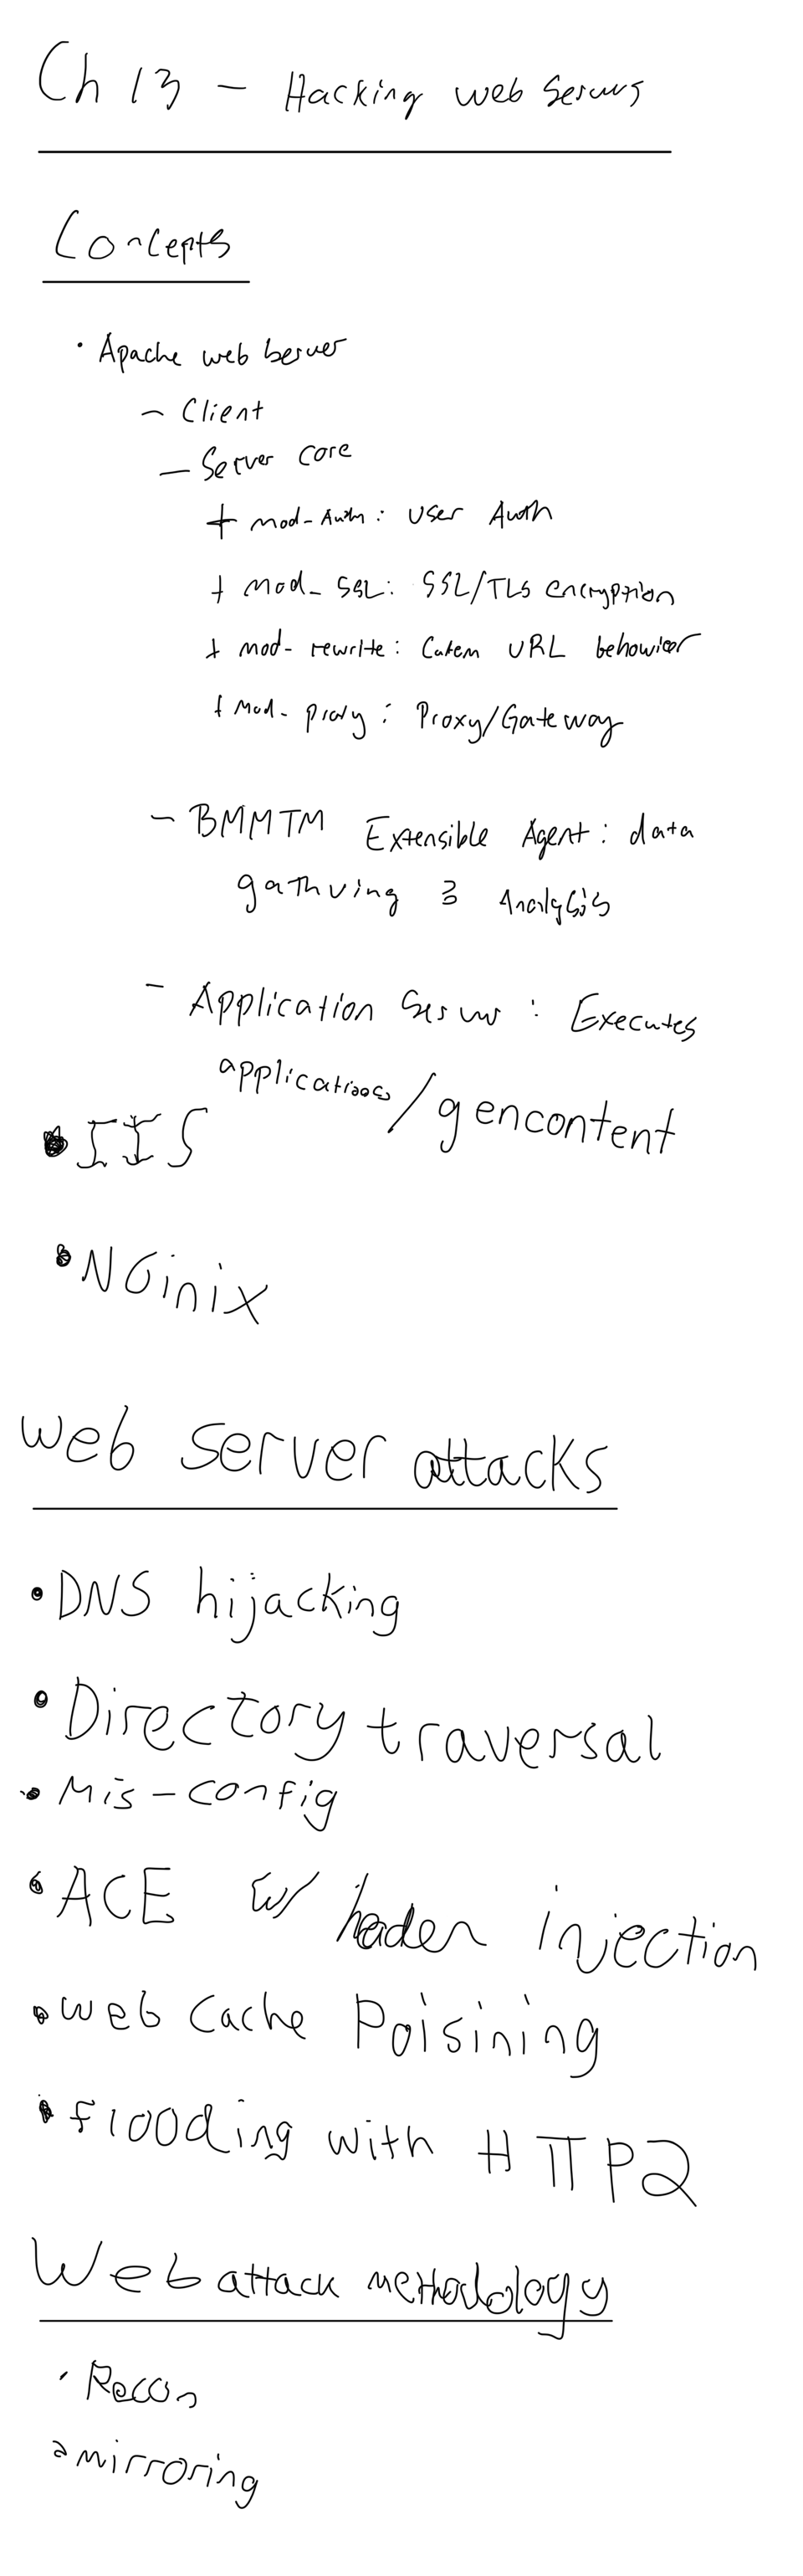 Ch 13 - Hacking web Servers
Concepts
• Apache web Server
- Client
- Server core
+ mod-Auth: User Auth
+ mod_SSL: SSL/TLS encryption
+ mod-rewrite: URL behavior
+ Mod-proxy: Proxy/Gateway
- BMMTM Extensible Agent: data
gathering & Analysis
- Application Server: Executes
applications/gencontent
• IIS
• NGinix
Web Server attacks
• DNS hijacking
• Directory traversal
• Mis-config
• ACE w/ header injection
• web cache Poisining
• flooding with HTTP2
Web attack methodology
• Recon
• mirroring